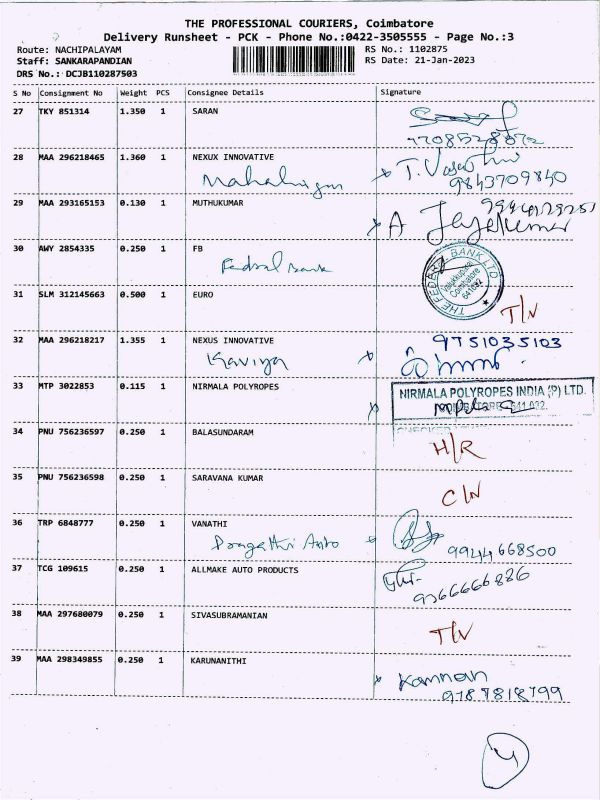 THE PROFESSIONAL COURIERS, Coimbatore
Delivery Runsheet - PCK - Phone No.:0422-3505555 - Page No.:3
Route: NACHIPALAYAM
RS No.: 1102875
Staff: SANKARAPANDIAN
RS Date: 21-Jan-2023
DRS No.: DCJB110287503
S No Consignment No Weight PCS Consignee Details Signature
27 TKY 851314 1.350 1 SARAN
28 MAA 296218465 1.360 1 NEXUX INNOVATIVE
9843709840
29 MAA 293165153 0.130 1 MUTHUKUMAR
A Jeyakumar
30 AWY 2854335 0.250 1 FB
Fedral Bank
THE FEDERAL BANK LTD.
Coimbatore
641032
31 SLM 312145663 0.500 1 EURO T/N
32 MAA 296218217 1.355 1 NEXUS INNOVATIVE 9751035103
Kaviya
33 MTP 3022853 0.115 1 NIRMALA POLYROPES
NIRMALA POLYROPES INDIA (P) LTD.
34 PNU 756236597 0.250 1 BALASUNDARAM H/R
35 PNU 756236598 0.250 1 SARAVANA KUMAR C/N
36 TRP 6848777 0.250 1 VANATHI
Pragathi Auto 9944668500
37 TCG 109615 0.250 1 ALLMAKE AUTO PRODUCTS
9366666826
38 MAA 297680079 0.250 1 SIVASUBRAMANIAN T/N
39 MAA 298349855 0.250 1 KARUNANITHI Kannan
9787818799
4